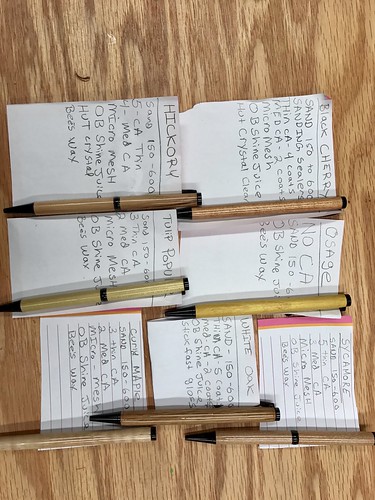 Black CHERRY
SAND 150 to 600
SANDING Sealer
Thin CA - 4 coats
MED CA - 2 coats
Micro Mesh
OB Shine Juice
Hut Crystal
OSAGE
NO CA
SAND 150-6
OB Shine
Bees Wax
SYCAMORE
SAND 150-600
Thin CA
3 Med CA
Micro Mesh
OB Shine Juice
Bees Wax
HICKORY
Sand 150-600
5 - CA Thin
4 - Med CA
Micro MESH
OB Shine Juice
HUT Crystal
Bees Wax
TULIP
Sand 150-60
3 Thin CA
2 Med CA
Micro Mesh
OB Shine
Bees Wax
WHITE OAK
SAND - 150-600
Thin CA - 5 coats
Med CA - 2 coats
OB Shine Juice
Stick fast gloss
CURLY MAPLE
SAND 150-600
3 Thin CA
2 Med CA
Micro Mesh
OB Shine Juice
Bees Wax